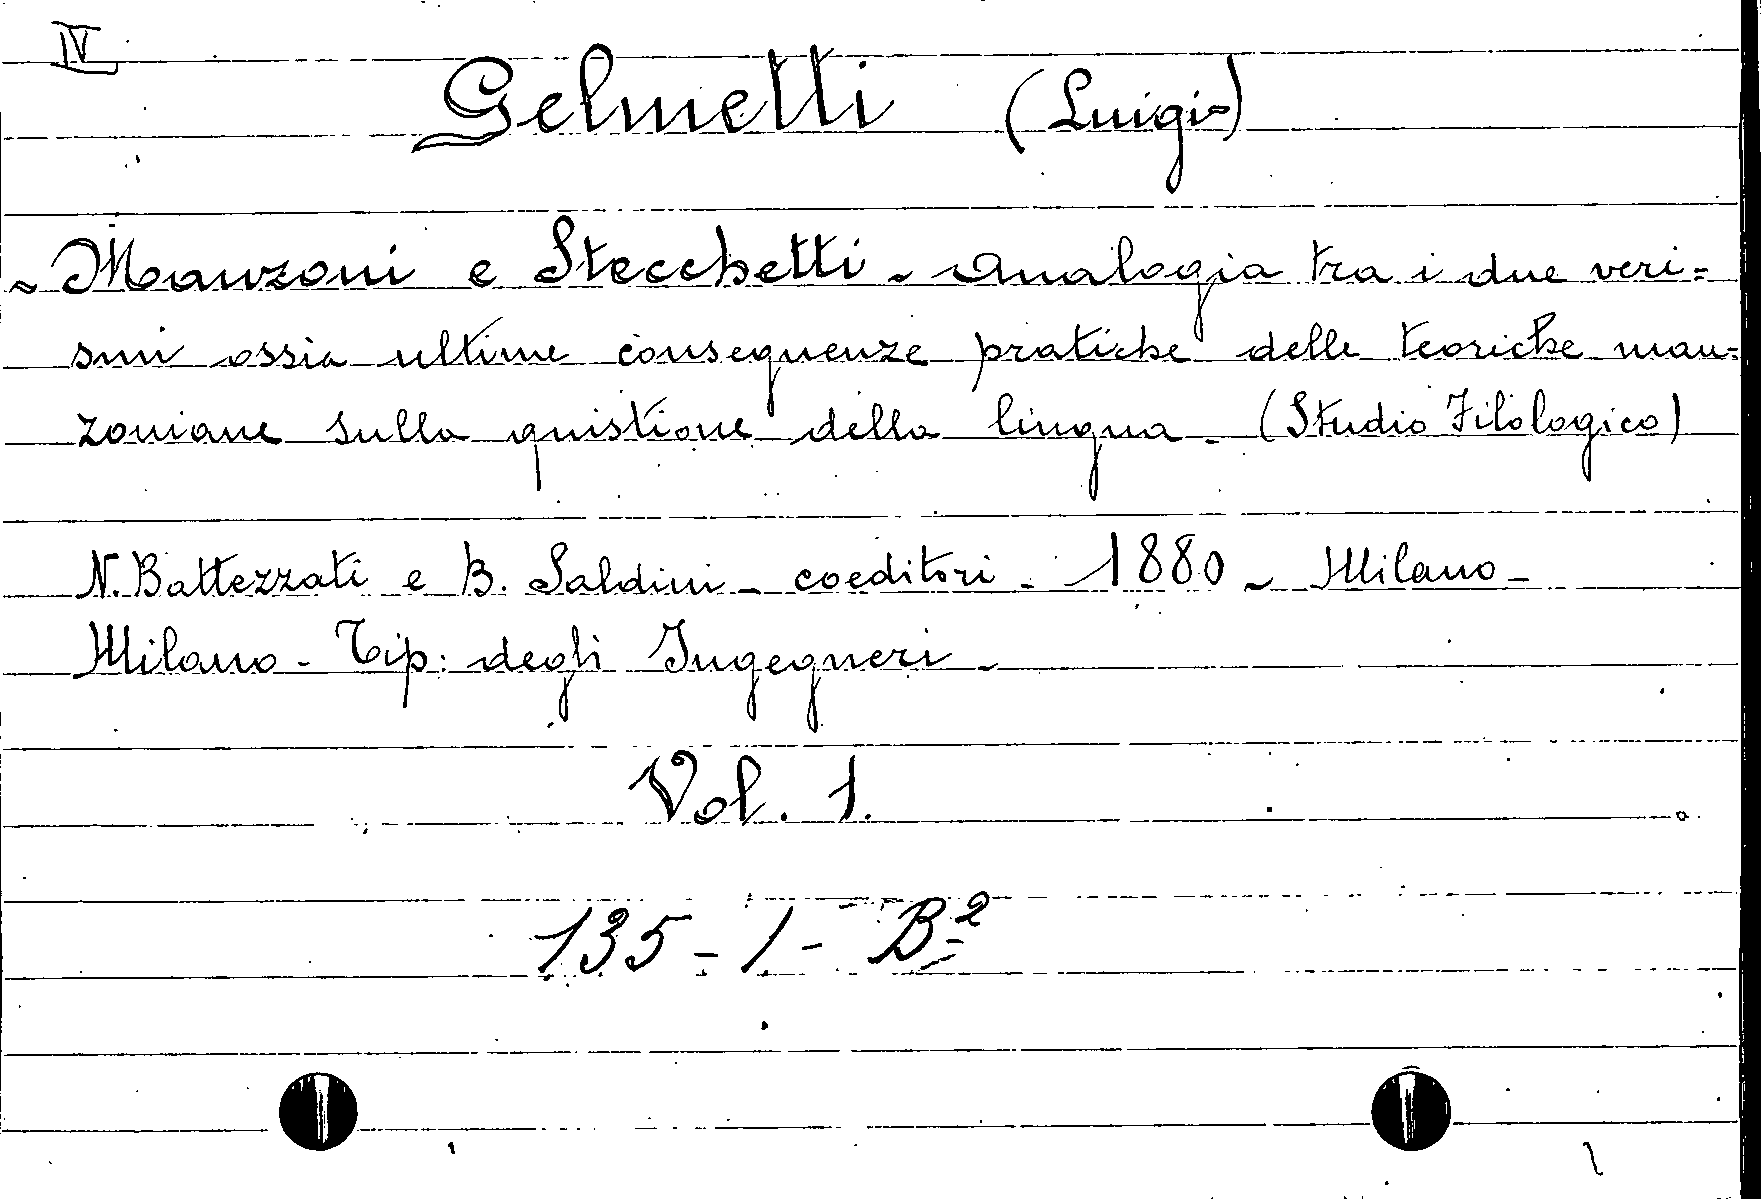 IV
Gelmetti (Luigi)
- Manzoni e Stecchetti - Analogia tra i due veri=
smi ossia ultime conseguenze pratiche delle teoriche man=
zoniane sulla quistione della lingua. (Studio Filologico)
N. Battezzati e B. Saldini - coeditori - 1880 - Milano -
Milano - Tip: degli Ingegneri -
Vol. 1.
135 - 1 - B²